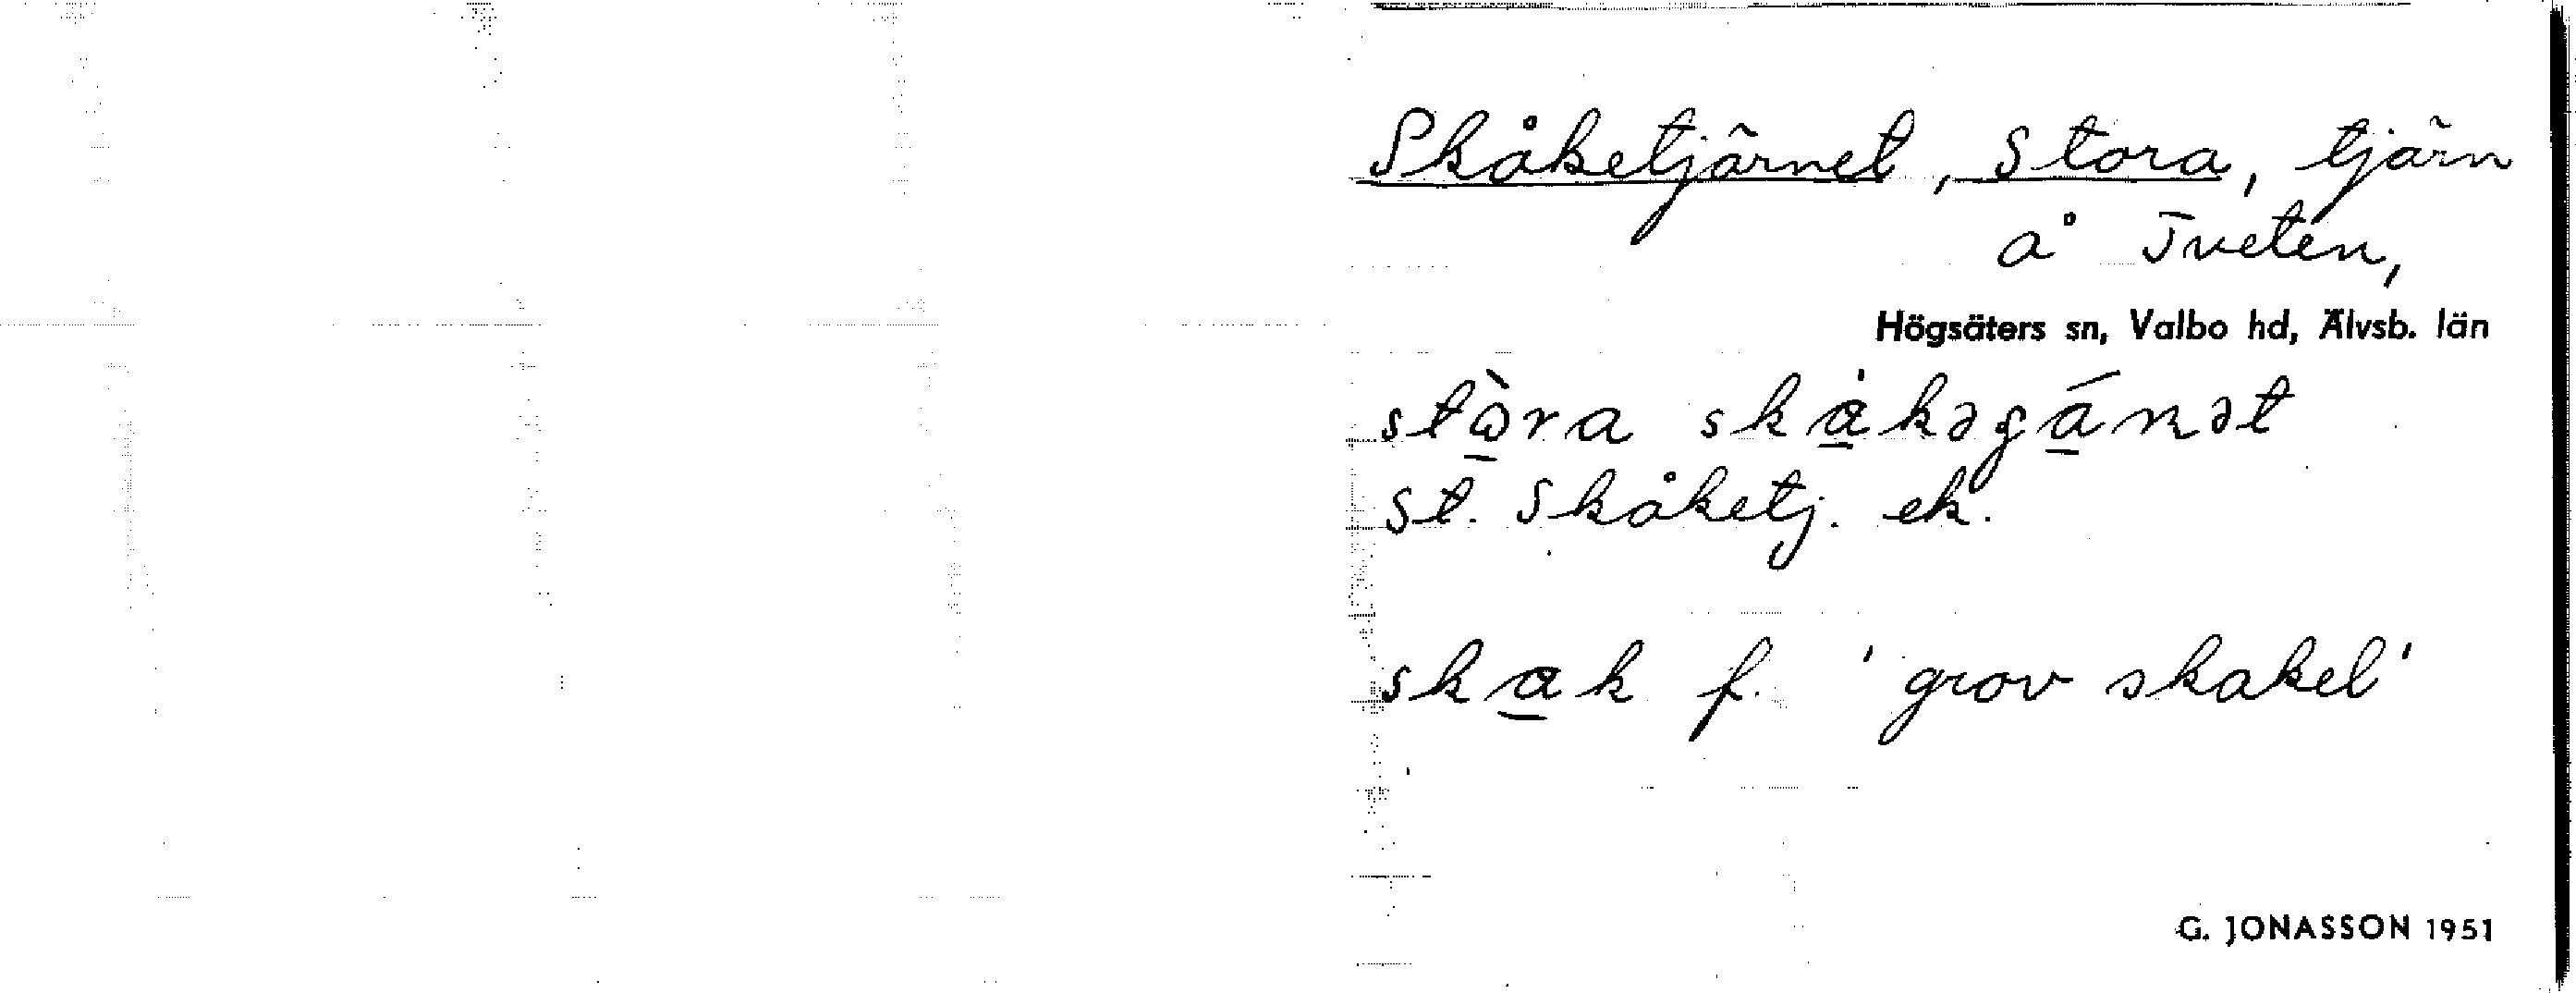 Skåketjärnet, Stora, tjärn
å Tveten,
Högsäters sn, Valbo hd, Älvsb. län
stὼra skàkəgánət
St. Skåketj. ek.
skak f. 'grov skakel'
G. JONASSON 1951